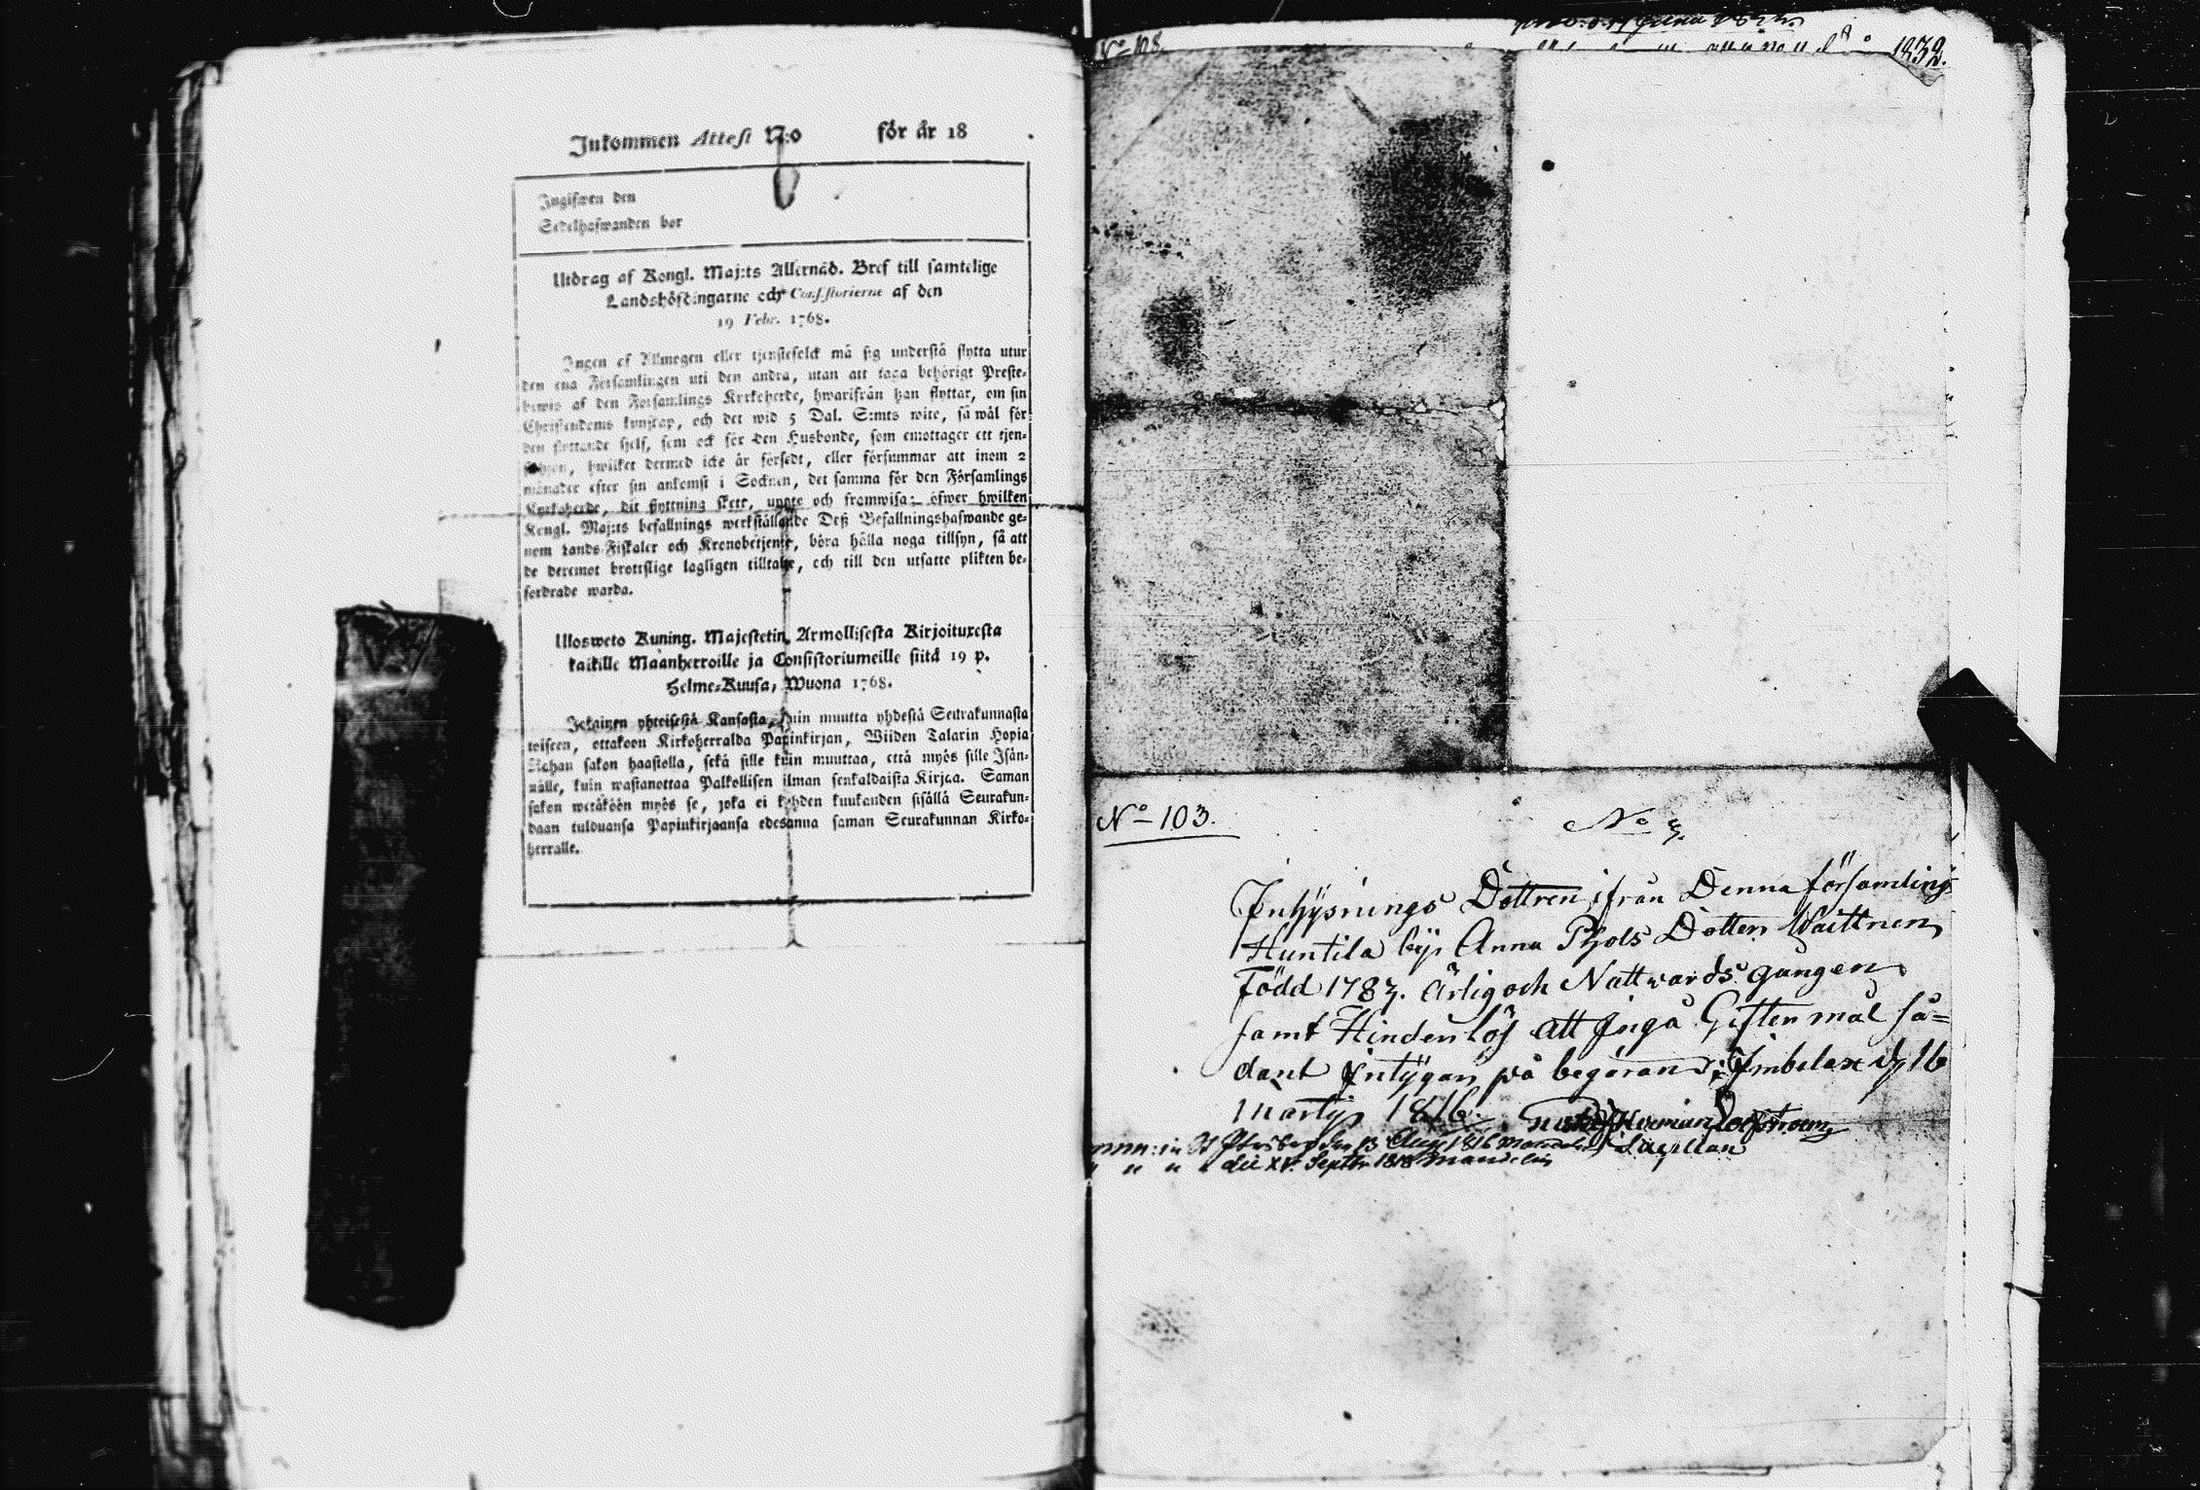 Inkommen Attest N:o för år 18
Ingifwen den
Sedelhafwanden bor
Utdrag af Kongl. Maj:ts Allernåd. Bref till samtelige
Landshöfdingarne och Consistorierne af den
19 Febr. 1768.
Ingen af Allmogen eller tjenstefolck må sig understå flytta utur
den ena Församlingen uti den andra, utan att taga behörigt Preste-
bewis af den Församlings Kyrkoherde, hwarifrån han flyttar, om sin
Christendoms kunskap, och det wid 5 Dal. S:mts wite, så wäl för
den flyttande sjelf, som ock för den Husbonde, som emottager ett tjen-
stehjon, hwilket dermed icke är försedt, eller försummar att inom 2
månader efter sin ankomst i Socknen, det samma för den Församlings
Kyrkoherde, dit flyttning skett, uppte och framwisa; öfwer hwilken
Kongl. Maj:ts befallnings werkställande Deß Befallningshafwande ge-
nom Lands-Fiskaler och Kronobetjente, böra hålla noga tillsyn, så att
de deremot brottslige lagligen tilltalte, och till den utsatte plikten be-
fordrade warda.
Ulosweto Kuning. Majestetin Armollisesta Kirjoituxesta
kaikille Maanherroille ja Consistoriumeille siitä 19 p.
Helme-Kuusa, Wuona 1768.
Jokainen yhteisestä Kansasta, kuin muutta yhdestä Seurakunnasta
toiseen, ottakoon Kirkoherralda Papinkirjan, Wiiden Talarin Hopia
Rahan sakon haastolla, sekä sille kuin muuttaa, että myös sille Isän-
nälle, kuin wastanottaa Palkollisen ilman senkaldaista Kirjaa. Saman
sakon wetäköön myös se, joka ei kahden kuukauden sisällä Seurakun-
daan tulduansa Papinkirjaansa edesanna saman Seurakunnan Kirko-
herralle.
No 108.
1832.
No 103.
No
Inhysnings Dottren ifrån Denna församlings
Huntila by, Anna Phols Dotter Waittnen
Född 1783. Ärlig och Nattwards gången
samt Hinderlös att Ingå Giftermål så=
dant Intygan på begäran; Imbelax d 16
Martij 1816.
Aug 1816
Septbr 1818